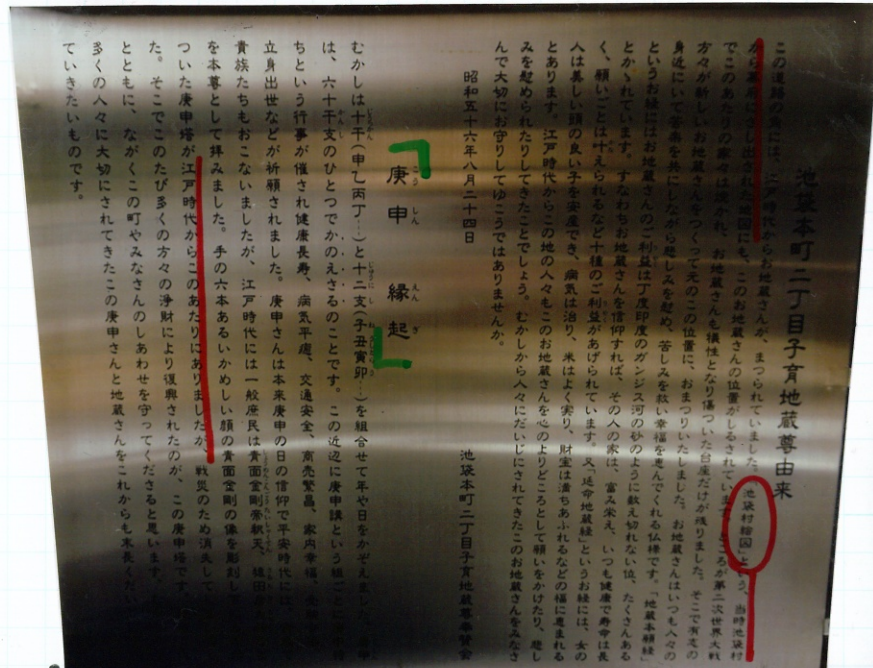 池袋本町二丁目子育地蔵尊由来
この道路の角には、江戸時代からお地蔵さんが、まつられていました。「池袋村絵図」という、当時池袋村
から幕府にさし出された地図にも、このお地蔵さんの位置がしるされています。ところが第二次世界大戦
でこのあたりの家々は焼かれ、お地蔵さんも犠性となり傷ついた台座だけが残りました。そこで有志の
方々が新しいお地蔵さんをつくって元のこの位置に、おまつりいたしました。お地蔵さんはいつも人々の
身近にいて苦楽を共にしながら悲しみを慰め、苦しみを救い幸福を恵んでくれる仏様です。「地蔵本願経」
というお経にはお地蔵さんのご利益は丁度印度のガンジス河の砂のように数え切れない位、たくさんある
とかゝれています。すなわちお地蔵さんを信仰すれば、その人の家は、富み栄え、いつも健康で寿命は長
く、願いごとは叶えられるなど十種のご利益があげられています。又「延命地蔵経」というお経には、女の
人は美しい頭の良い子を安産でき、病気は治り、米はよく実り、財宝は満ちあふれるなどの福に恵まれる
とあります。江戸時代からこの地の人々もこのお地蔵さんを心のよりどころとして願いをかけたり、悲し
みを慰められたりしてきたことでしょう。むかしから人々にだいじにされてきたこのお地蔵さんをみなさ
んで大切にお守りしてゆこうではありませんか。
昭和五十六年八月二十四日
池袋本町二丁目子育地蔵尊奉賛会
庚申縁起
むかしは十干(甲乙丙丁…)と十二支(子丑寅卯…)を組合せて年や日をかぞえました。庚申
は、六十干支のひとつでかのえさるのことです。この近辺に庚申講という組ごとに
ちという行事が催され健康長寿、病気平癒、交通安全、商売繁昌、家内幸福、
立身出世などが祈願されました。庚申さんは本来庚申の日の信仰で平安時代には、
貴族たちもおこないましたが、江戸時代には一般庶民は青面金剛帝釈天、猿田
を本尊として拝みました。手の六本あるいかめしい顔の青面金剛の像を彫刻し
ついた庚申塔が江戸時代からこのあたりにありましたが、戦災のため消失して
た。そこでこのたび多くの方々の浄財により復興されたのが、この庚申塔です。
とともに、ながくこの町やみなさんのしあわせを守ってくださると思います。
多くの人々に大切にされてきたこの庚申さんと地蔵さんをこれからも末長くだい
ていきたいものです。